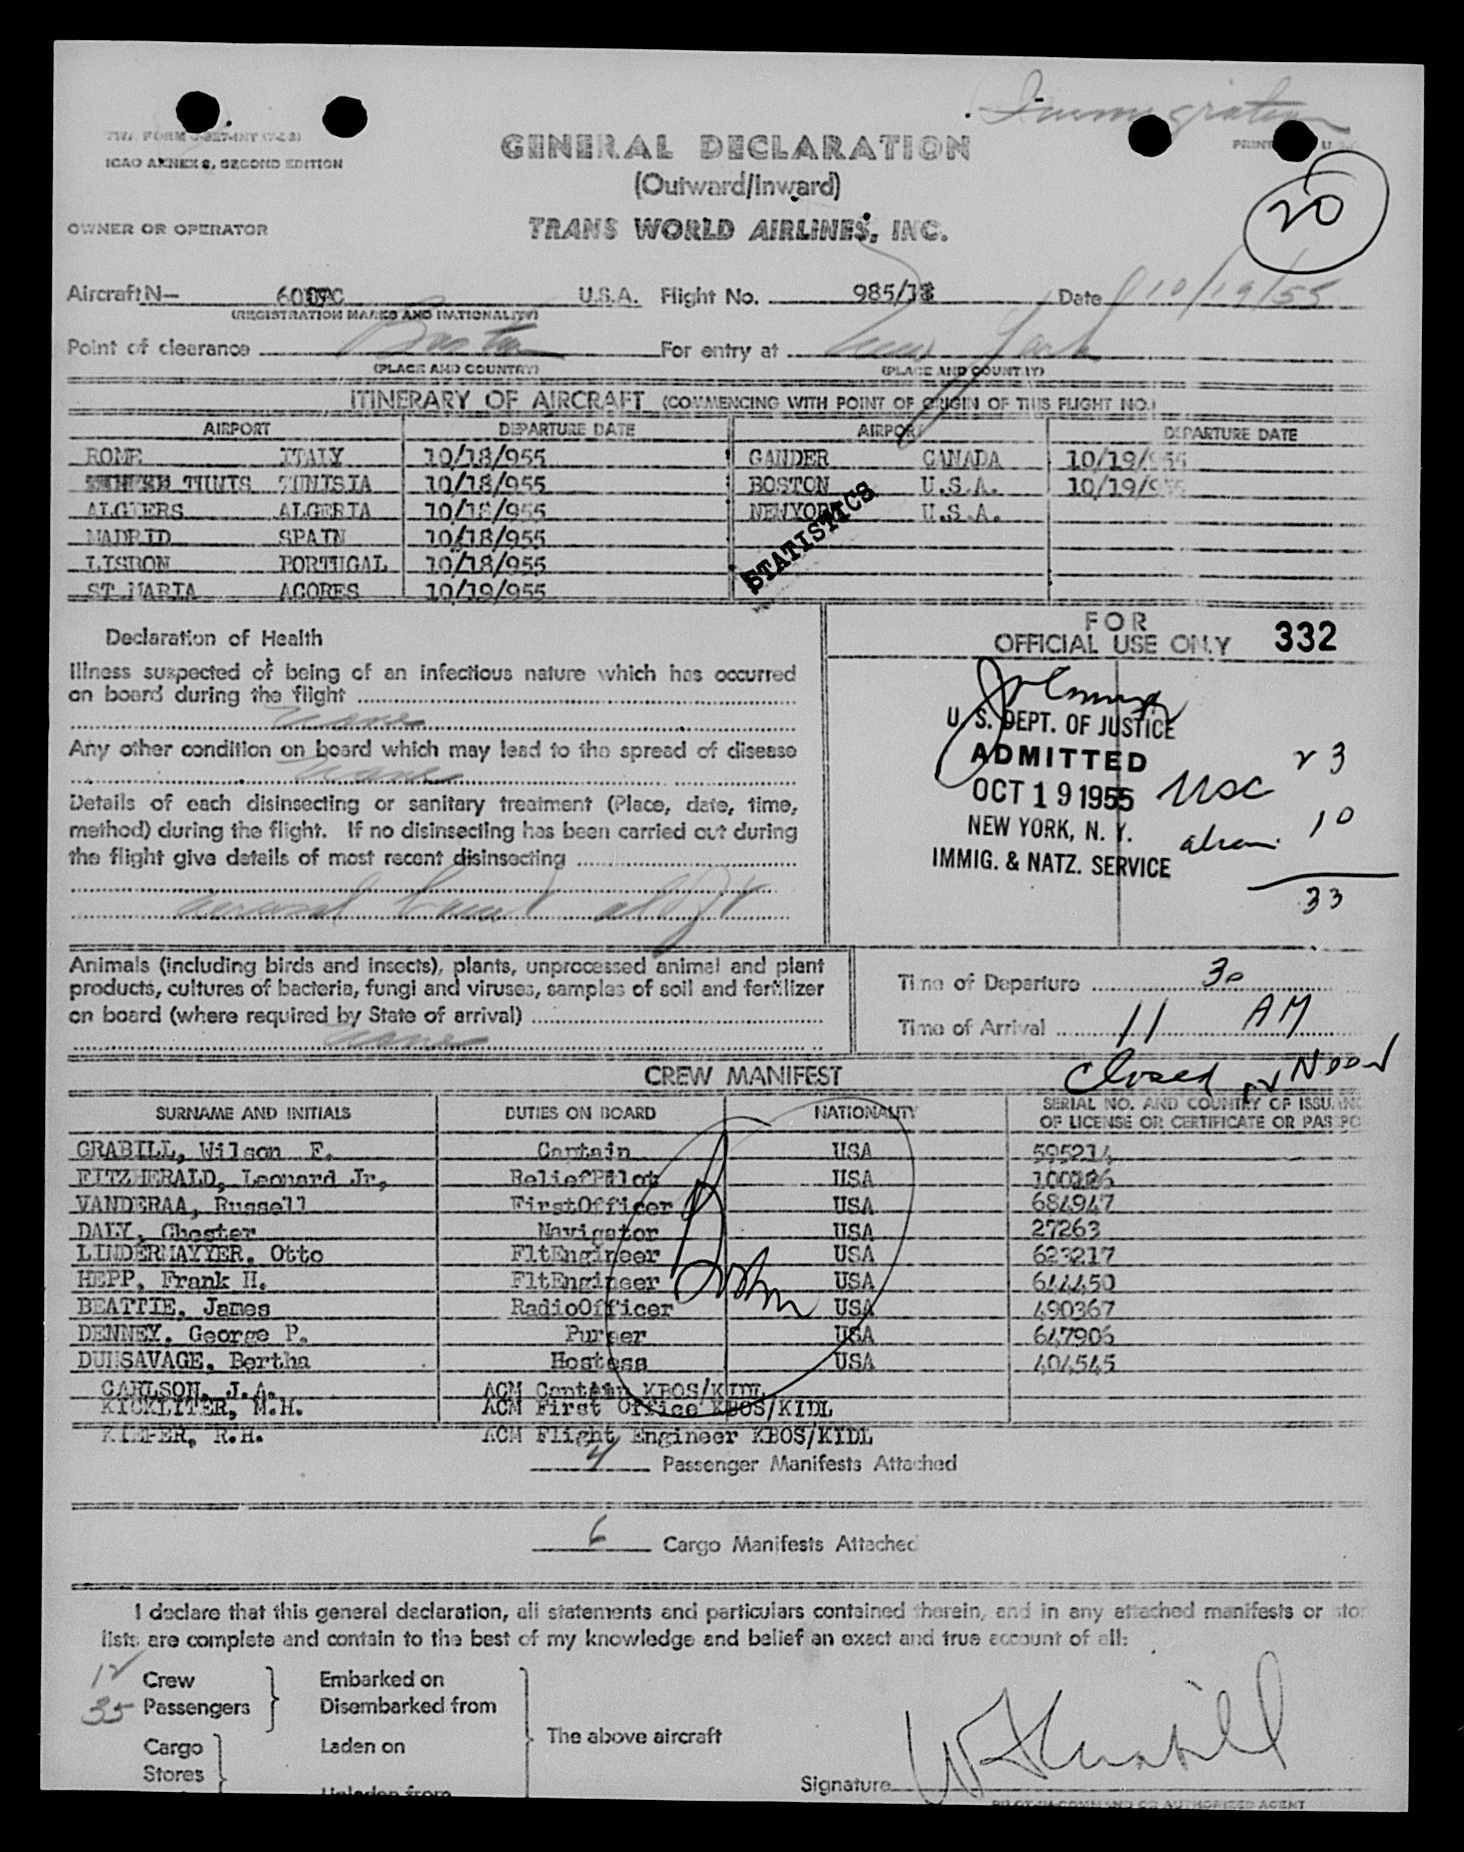 Immigration
ICAO ANNEX 9, SECOND EDITION
GENERAL DECLARATION
(Outward/Inward)
20
OWNER OR OPERATOR
TRANS WORLD AIRLINES, INC.
Aircraft N— U.S.A. Flight No. 985/18 Date 10/19/55
(REGISTRATION MARKS AND NATIONALITY)
Point of clearance Boston For entry at New York
(PLACE AND COUNTRY) (PLACE AND COUNTRY)
ITINERARY OF AIRCRAFT (COMMENCING WITH POINT OF ORIGIN OF THIS FLIGHT NO.)
AIRPORT DEPARTURE DATE AIRPORT DEPARTURE DATE
ROME ITALY 10/18/955 GANDER CANADA 10/19/955
TUNIS TUNISIA 10/18/955 BOSTON U.S.A. 10/19/955
ALGIERS ALGERIA 10/18/955 NEWYORK U.S.A.
MADRID SPAIN 10/18/955
LISBON PORTUGAL 10/18/955
ST.MARIA ACORES 10/19/955
STATISTICS
Declaration of Health
FOR
OFFICIAL USE ONLY 332
Illness suspected of being of an infectious nature which has occurred
on board during the flight
None
Any other condition on board which may lead to the spread of disease
None
Details of each disinsecting or sanitary treatment (Place, date, time,
method) during the flight. If no disinsecting has been carried out during
the flight give details of most recent disinsecting
aerosol bomb
U. S. DEPT. OF JUSTICE
ADMITTED
OCT 19 1955
NEW YORK, N. Y.
IMMIG. & NATZ. SERVICE
USC 23
alien 10
33
Animals (including birds and insects), plants, unprocessed animal and plant
products, cultures of bacteria, fungi and viruses, samples of soil and fertilizer
on board (where required by State of arrival)
None
Time of Departure 30
Time of Arrival 11 AM
Closed 12 NOON
CREW MANIFEST
SURNAME AND INITIALS DUTIES ON BOARD NATIONALITY SERIAL NO. AND COUNTRY OF ISSUANC
OF LICENSE OR CERTIFICATE OR PASSPO
GRABILL, Wilson F. Captain USA 595214
FITZHERALD, Leonard Jr, ReliefPilot USA
VANDERAA, Russell FirstOfficer USA 684947
DALY, Chester Navigator USA 27263
LINDERMAYYER, Otto FltEngineer USA 623217
HEPP, Frank H. FltEngineer USA 644450
BEATTIE, James RadioOfficer USA 490367
DENNEY, George P. Purser USA 647906
DUNSAVAGE, Bertha Hostess USA 404545
CARLSON, J.A. ACM Captain KBOS/KIDL
KICKLITER, M.H. ACM First Office KBOS/KIDL
KIEFER, R.H. ACM Flight Engineer KBOS/KIDL
4 Passenger Manifests Attached
6 Cargo Manifests Attached
I declare that this general declaration, all statements and particulars contained therein, and in any attached manifests or stor
lists are complete and contain to the best of my knowledge and belief an exact and true account of all:
12 Crew
35 Passengers
Embarked on
Disembarked from
Cargo
Stores
Laden on
Unladen from
The above aircraft
Signature W F Grabill
PILOT-IN-COMMAND OR AUTHORIZED AGENT